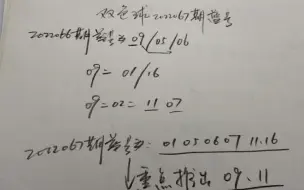 双色球2022067期蓝号
2022066期蓝号为09/05/06
09=01/16
09=02=11 07
2022067期蓝号为:01 05 06 07 11.16
↓重点推出09.11